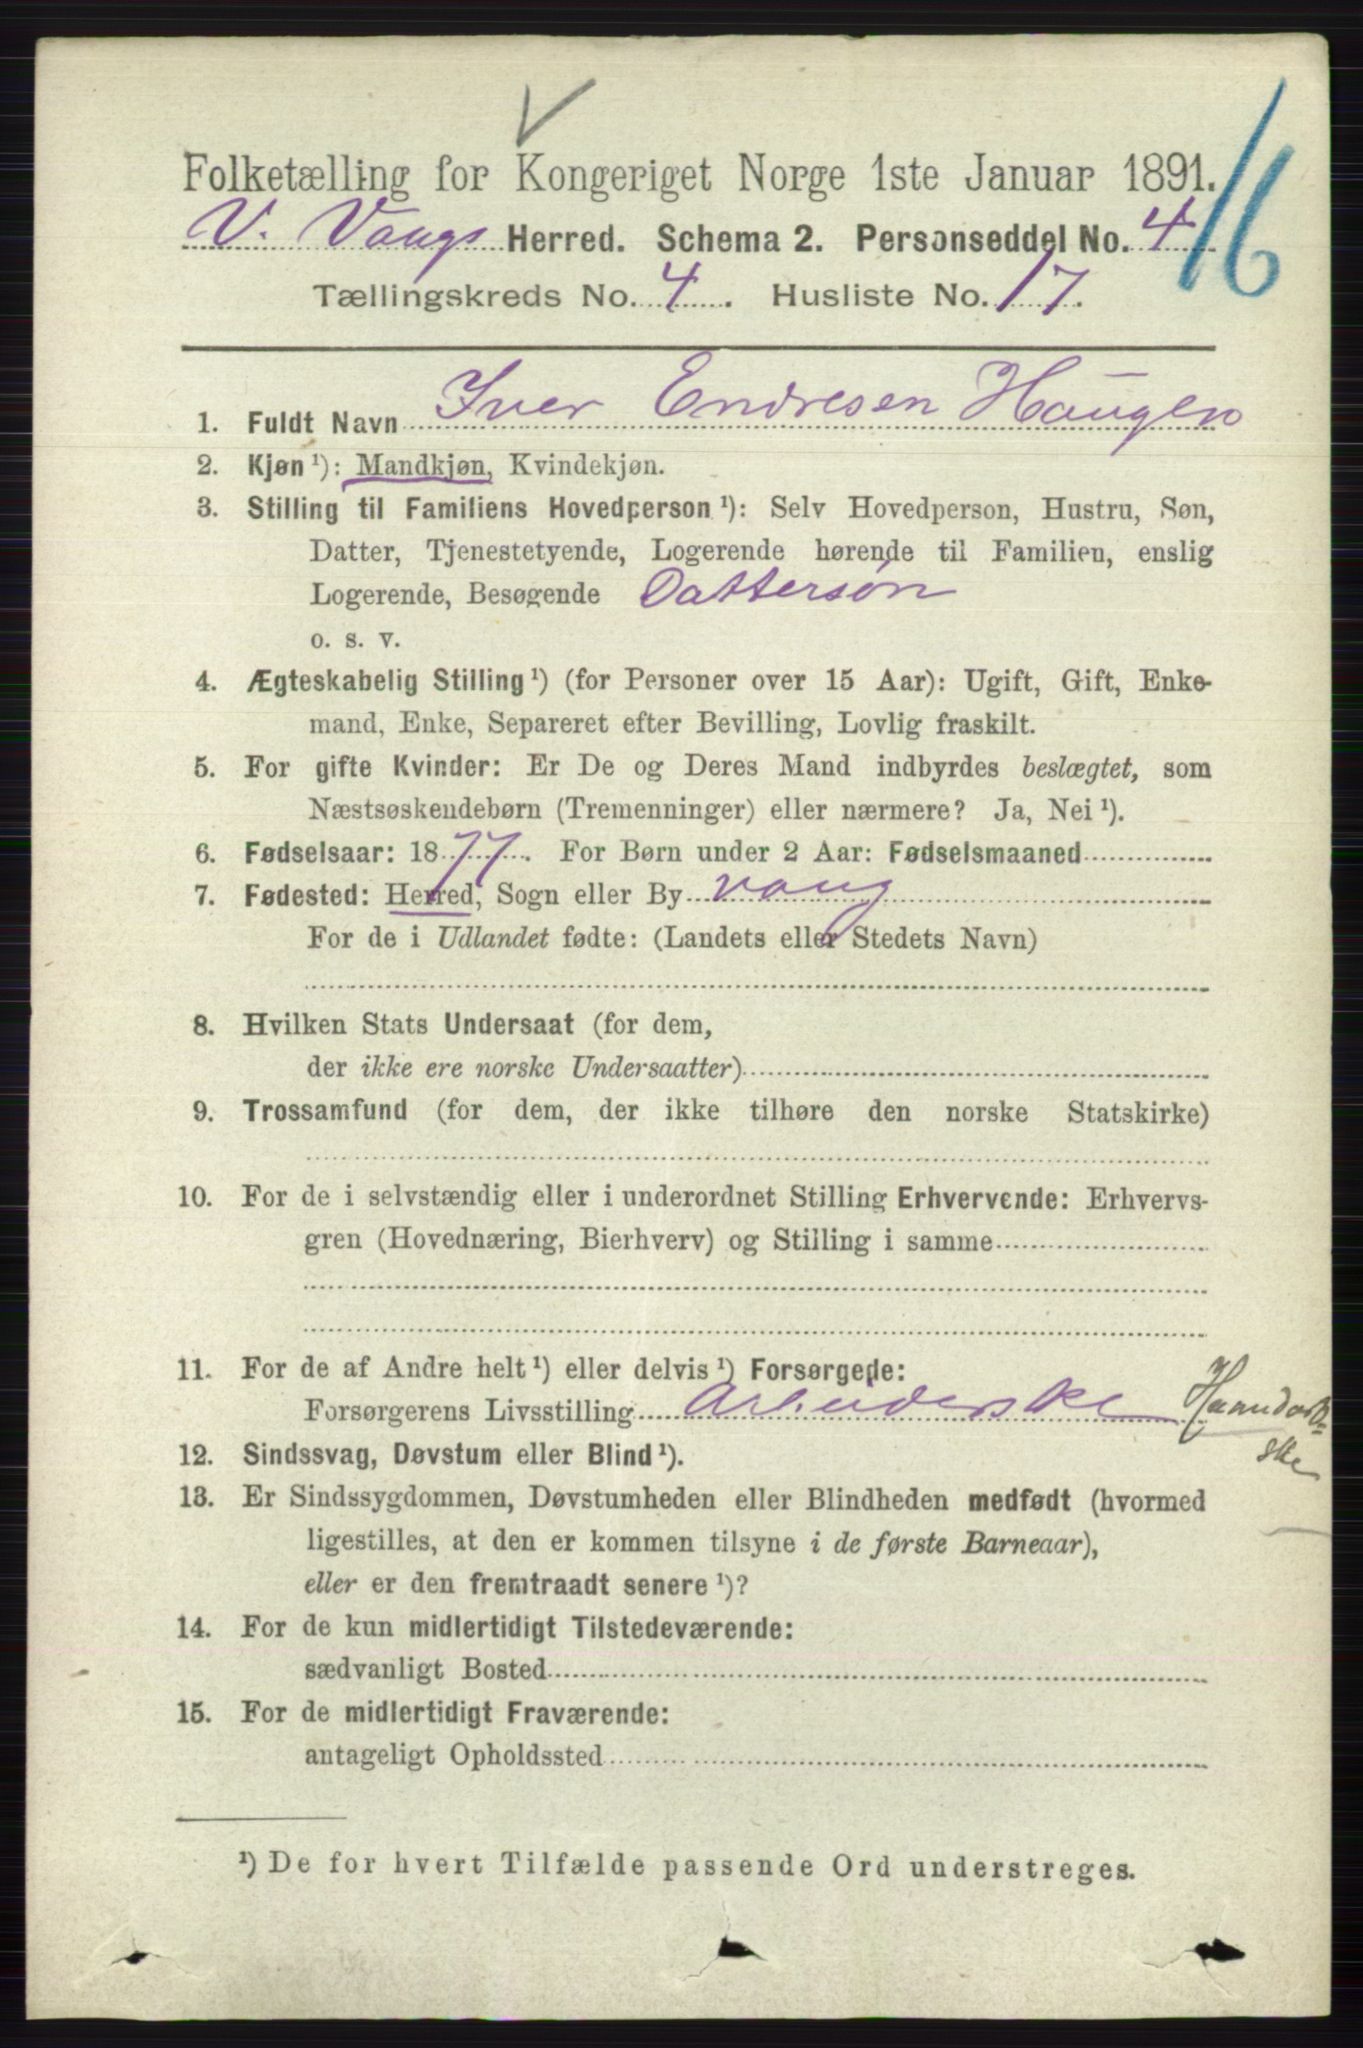 Folketælling for Kongeriget Norge 1ste Januar 1891.
16
V. Vangs Herred. Schema 2. Personseddel No. 4
Tællingskreds No. 4. Husliste No. 17.
1. Fuldt Navn Iver Endresen Haugen
2. Kjøn¹): Mandkjøn, Kvindekjøn.
3. Stilling til Familiens Hovedperson¹): Selv Hovedperson, Hustru, Søn,
Datter, Tjenestetyende, Logerende hørende til Familien, enslig
Logerende, Besøgende Dattersøn
o. s. v.
4. Ægteskabelig Stilling¹) (for Personer over 15 Aar): Ugift, Gift, Enke-
mand, Enke, Separeret efter Bevilling, Lovlig fraskilt.
5. For gifte Kvinder: Er De og Deres Mand indbyrdes beslægtet, som
Næstsøskendebørn (Tremenninger) eller nærmere? Ja, Nei¹).
6. Fødselsaar: 1877. For Børn under 2 Aar: Fødselsmaaned
7. Fødested: Herred, Sogn eller By vang
For de i Udlandet fødte: (Landets eller Stedets Navn)
8. Hvilken Stats Undersaat (for dem,
der ikke ere norske Undersaatter)
9. Trossamfund (for dem, der ikke tilhøre den norske Statskirke)
10. For de i selvstændig eller i underordnet Stilling Erhvervende: Erhvervs-
gren (Hovednæring, Bierhverv) og Stilling i samme
11. For de af Andre helt¹) eller delvis¹) Forsørgede:
Forsørgerens Livsstilling Arbeiderske
12. Sindssvag, Døvstum eller Blind¹).
13. Er Sindssygdommen, Døvstumheden eller Blindheden medfødt (hvormed
ligestilles, at den er kommen tilsyne i de første Barneaar),
eller er den fremtraadt senere¹)?
14. For de kun midlertidigt Tilstedeværende:
sædvanligt Bosted
15. For de midlertidigt Fraværende:
antageligt Opholdssted
¹) De for hvert Tilfælde passende Ord understreges.